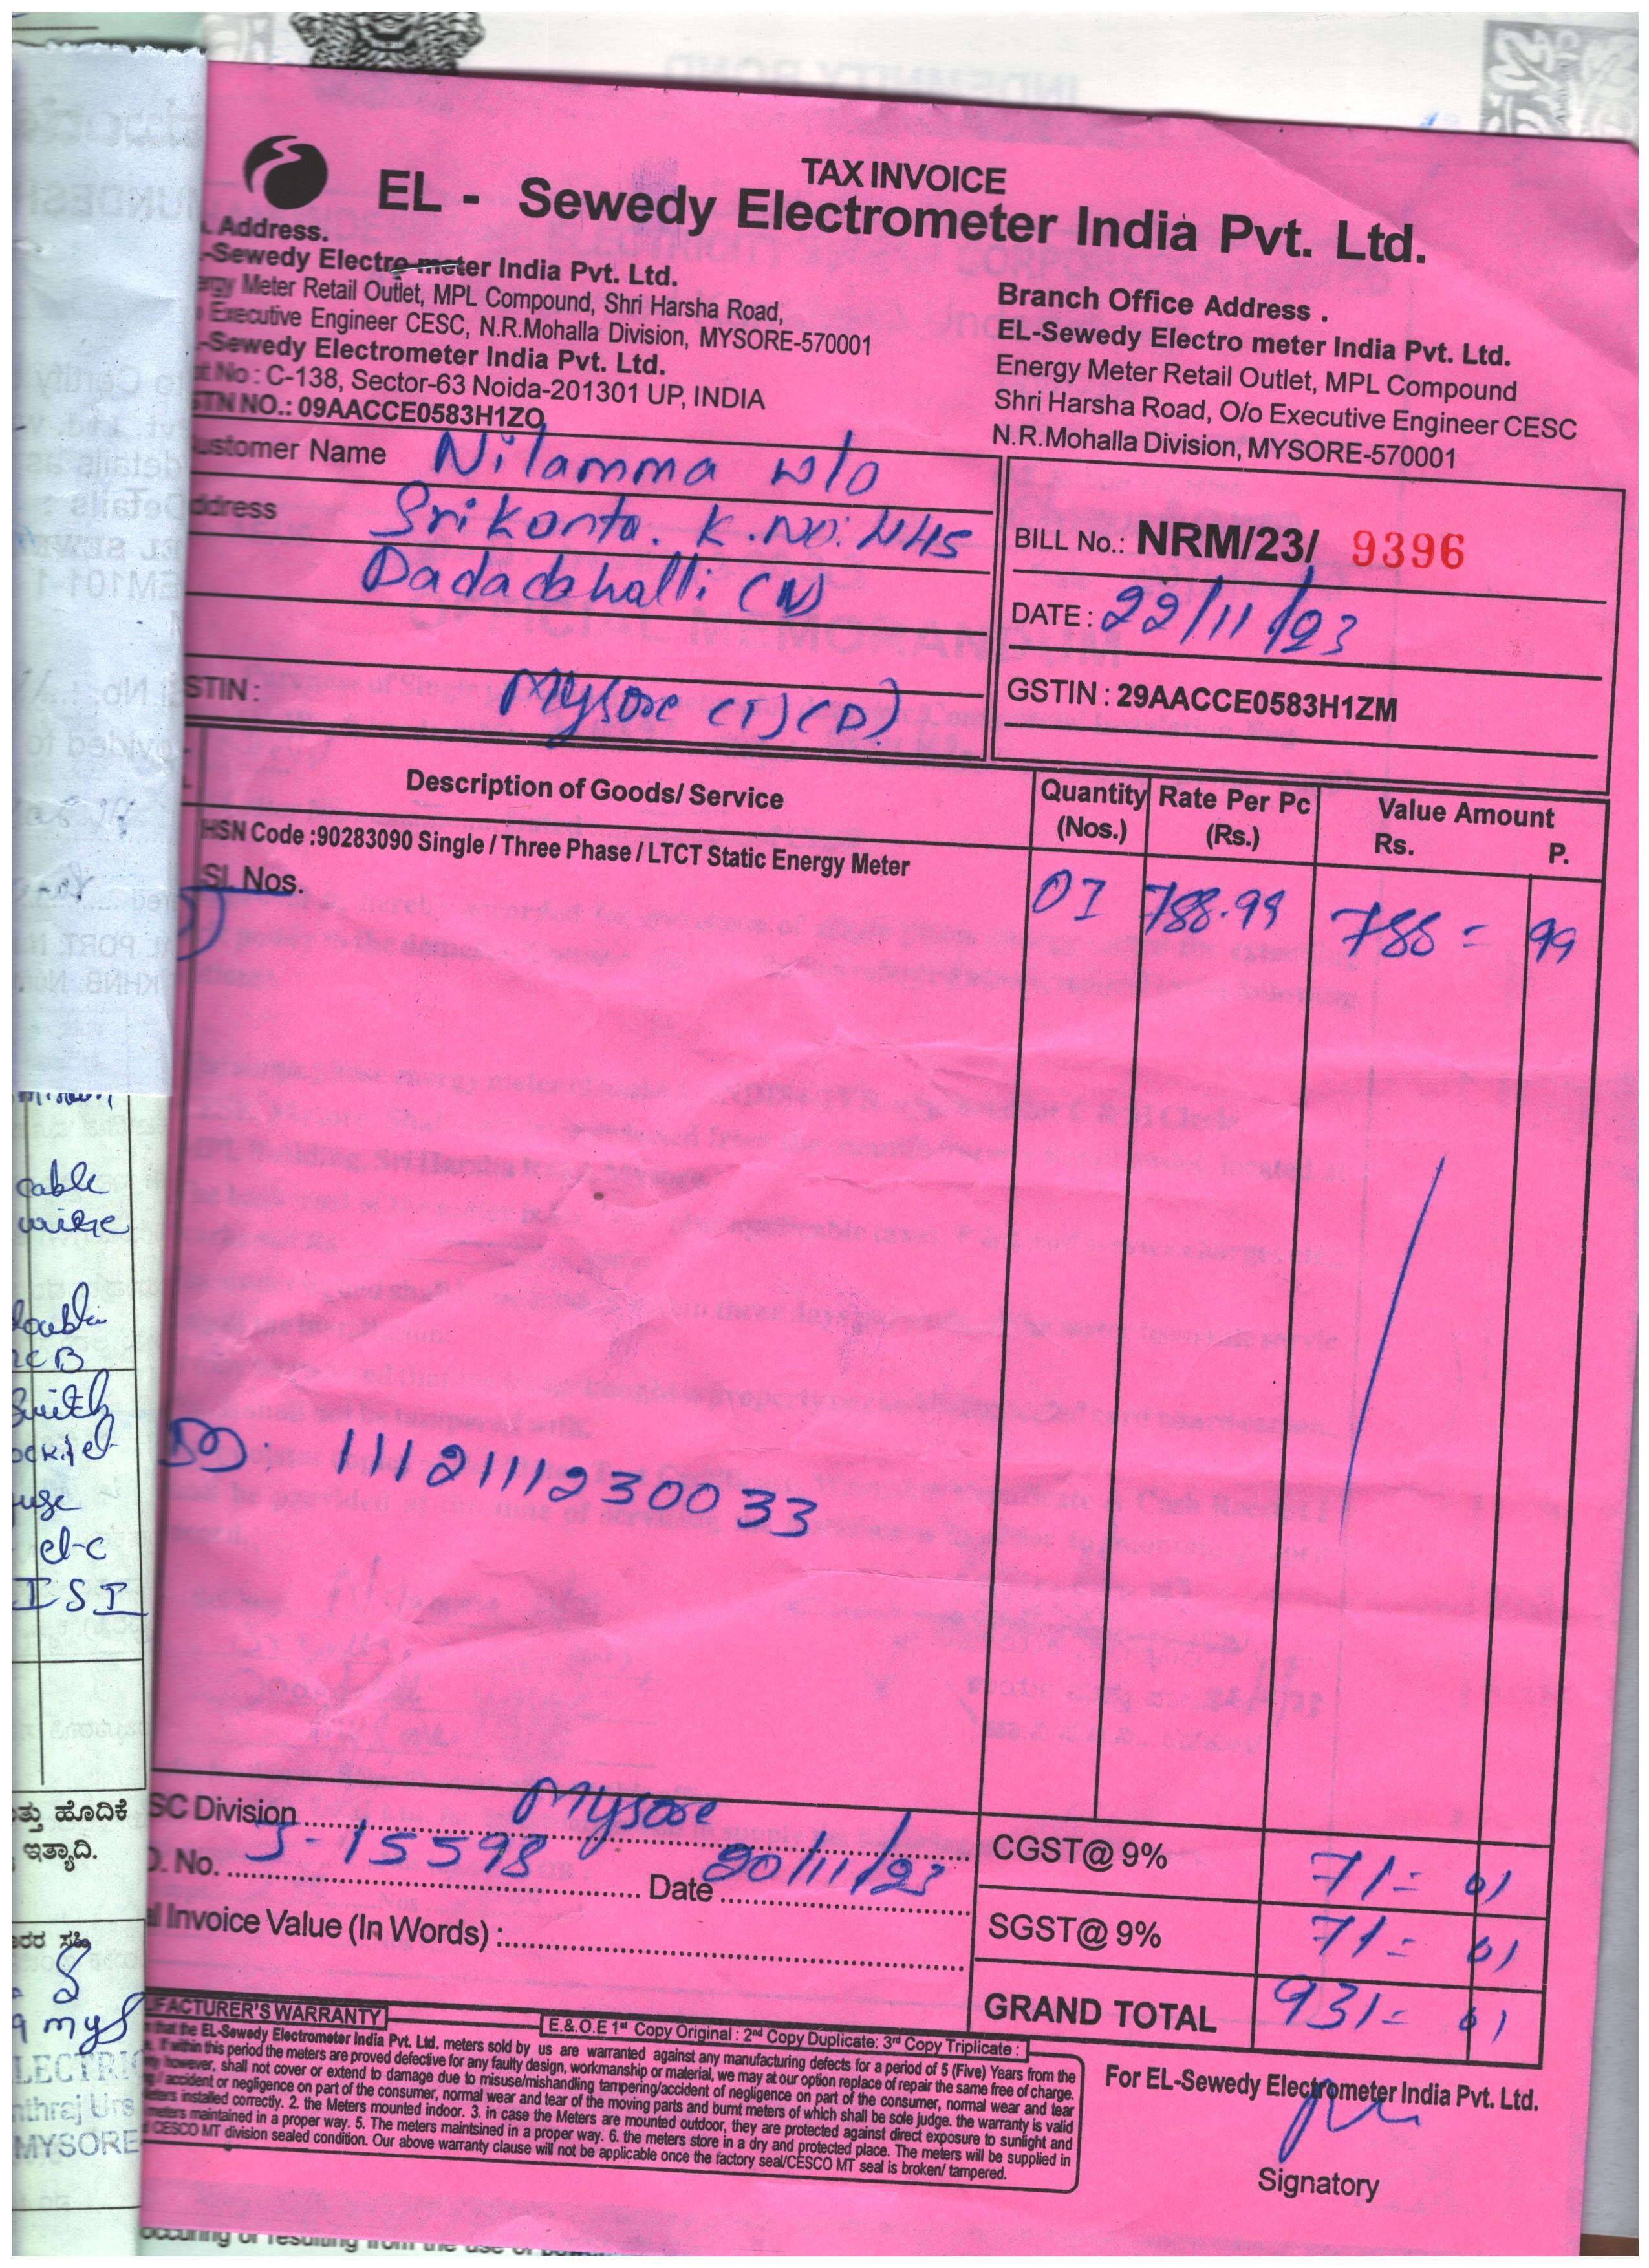 TAX INVOICE
EL - Sewedy Electrometer India Pvt. Ltd.
Address.
-Sewedy Electro meter India Pvt. Ltd.
Meter Retail Outlet, MPL Compound, Shri Harsha Road,
Executive Engineer CESC, N.R.Mohalla Division, MYSORE-570001
-Sewedy Electrometer India Pvt. Ltd.
No : C-138, Sector-63 Noida-201301 UP, INDIA
STN NO.: 09AACCE0583H1ZO
Branch Office Address .
EL-Sewedy Electro meter India Pvt. Ltd.
Energy Meter Retail Outlet, MPL Compound
Shri Harsha Road, O/o Executive Engineer CESC
N.R.Mohalla Division, MYSORE-570001
ustomer Name Nilamma w/o
ddress Srikonta. K.No: 445
Dadadahalli (N)
STIN : Mysore (T) (D)
BILL No.: NRM/23/ 9396
DATE : 22/11/23
GSTIN : 29AACCE0583H1ZM
Description of Goods/ Service
Quantity (Nos.)
Rate Per Pc (Rs.)
Value Amount
Rs. P.
HSN Code :90283090 Single / Three Phase / LTCT Static Energy Meter
SI. Nos.
01 788.99 788 = 99
111211123 0033
SC Division Mysore
No. J-15598 Date 20/11/23
Invoice Value (In Words) :
CGST@ 9% 71 = 01
SGST@ 9% 71 = 01
GRAND TOTAL 931 = 01
UFACTURER'S WARRANTY
E.& .O.E 1st Copy Original : 2nd Copy Duplicate: 3rd Copy Triplicate :
that the EL-Sewedy Electrometer India Pvt. Ltd. meters sold by us are warranted against any manufacturing defects for a period of 5 (Five) Years from the
If within this period the meters are proved defective for any faulty design, workmanship or material, we may at our option replace of repair the same free of charge.
however, shall not cover or extend to damage due to misuse/mishandling tampering/accident of negligence on part of the consumer, normal wear and tear
/ accident or negligence on part of the consumer, normal wear and tear of the moving parts and burnt meters of which shall be sole judge. the warranty is valid
installed correctly. 2. the Meters mounted indoor. 3. in case the Meters are mounted outdoor, they are protected against direct exposure to sunlight and
meters maintained in a proper way. 5. The meters maintsined in a proper way. 6. the meters store in a dry and protected place. The meters will be supplied in
CESCO MT division sealed condition. Our above warranty clause will not be applicable once the factory seal/CESCO MT seal is broken/ tampered.
For EL-Sewedy Electrometer India Pvt. Ltd.
Signatory
cable
ISI
ಹೊದಿಕೆ
ಇತ್ಯಾದಿ.
ಸಹಿ
MYSORE